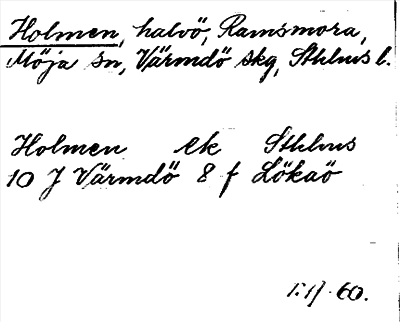 Holmen, halvö, Ramsmora,
Möja sn, Värmdö skg, Sthlms l.
Holmen ek Sthlms
10 J Värmdö 8 f Lökaö
60.